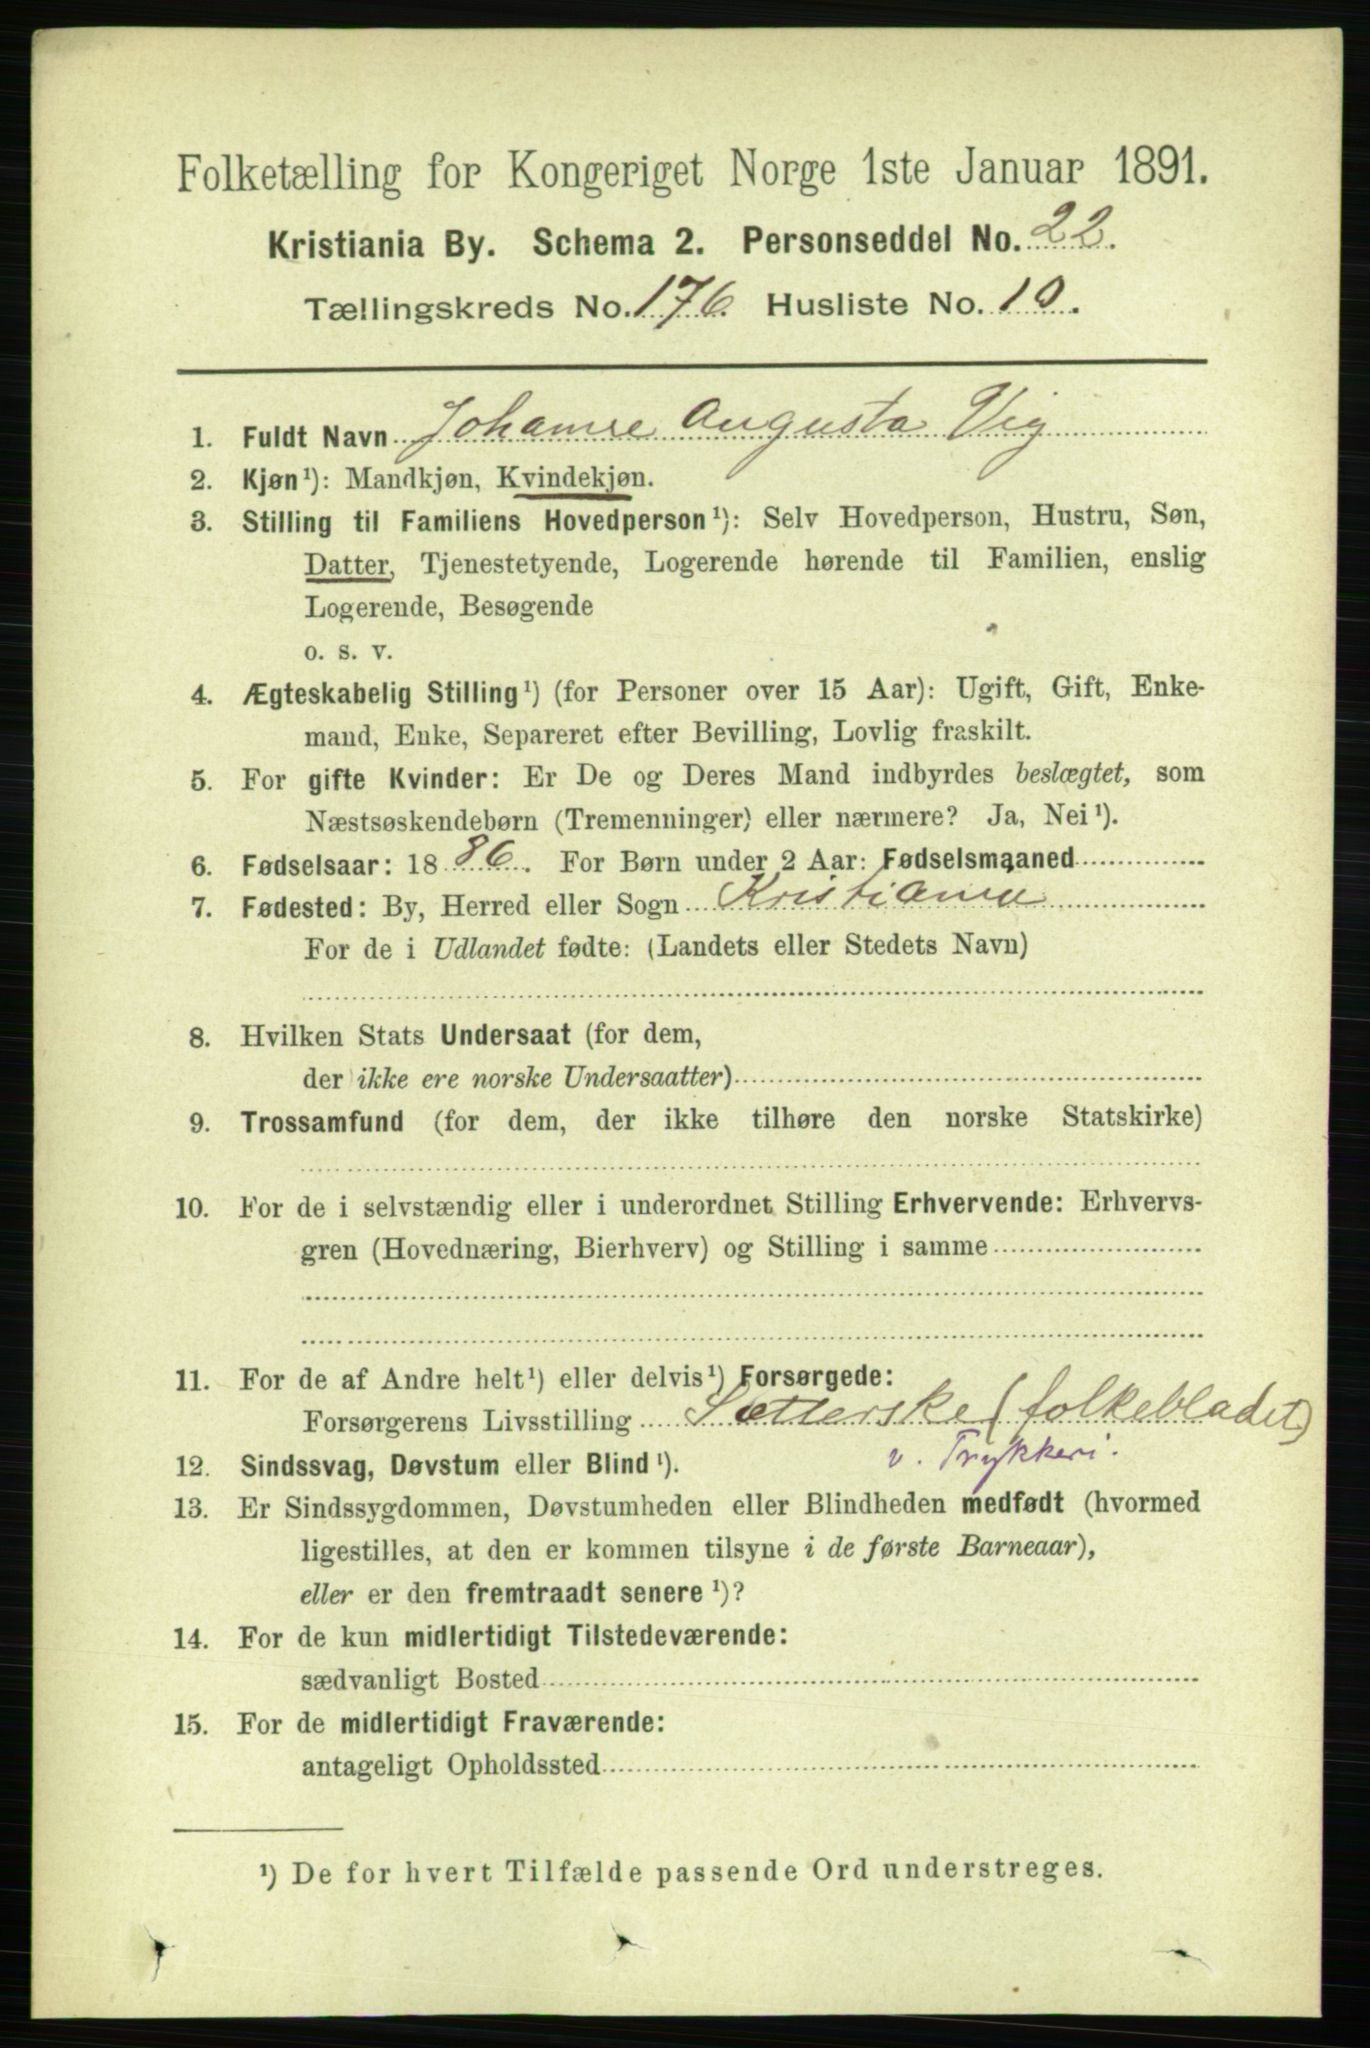 Folketælling for Kongeriget Norge 1ste Januar 1891.
Kristiania By. Schema 2. Personseddel No. 22.
Tællingskreds No. 176. Husliste No. 10.
1. Fuldt Navn Johanne Augusta Vig
2. Kjøn¹): Mandkjøn, Kvindekjøn.
3. Stilling til Familiens Hovedperson¹): Selv Hovedperson, Hustru, Søn,
Datter, Tjenestetyende, Logerende hørende til Familien, enslig
Logerende, Besøgende
o. s. v.
4. Ægteskabelig Stilling¹) (for Personer over 15 Aar): Ugift, Gift, Enke-
mand, Enke, Separeret efter Bevilling, Lovlig fraskilt.
5. For gifte Kvinder: Er De og Deres Mand indbyrdes beslægtet, som
Næstsøskendebørn (Tremenninger) eller nærmere? Ja, Nei¹).
6. Fødselsaar: 1886. For Børn under 2 Aar: Fødselsmaaned
7. Fødested: By, Herred eller Sogn Kristiania
For de i Udlandet fødte: (Landets eller Stedets Navn)
8. Hvilken Stats Undersaat (for dem,
der ikke ere norske Undersaatter)
9. Trossamfund (for dem, der ikke tilhøre den norske Statskirke)
10. For de i selvstændig eller i underordnet Stilling Erhvervende: Erhvervs-
gren (Hovednæring, Bierhverv) og Stilling i samme
11. For de af Andre helt¹) eller delvis¹) Forsørgede:
Forsørgerens Livsstilling Sætterske (folkebladet)
v. Trykkeri.
12. Sindssvag, Døvstum eller Blind¹).
13. Er Sindssygdommen, Døvstumheden eller Blindheden medfødt (hvormed
ligestilles, at den er kommen tilsyne i de første Barneaar),
eller er den fremtraadt senere¹)?
14. For de kun midlertidigt Tilstedeværende:
sædvanligt Bosted
15. For de midlertidigt Fraværende:
antageligt Opholdssted
¹) De for hvert Tilfælde passende Ord understreges.